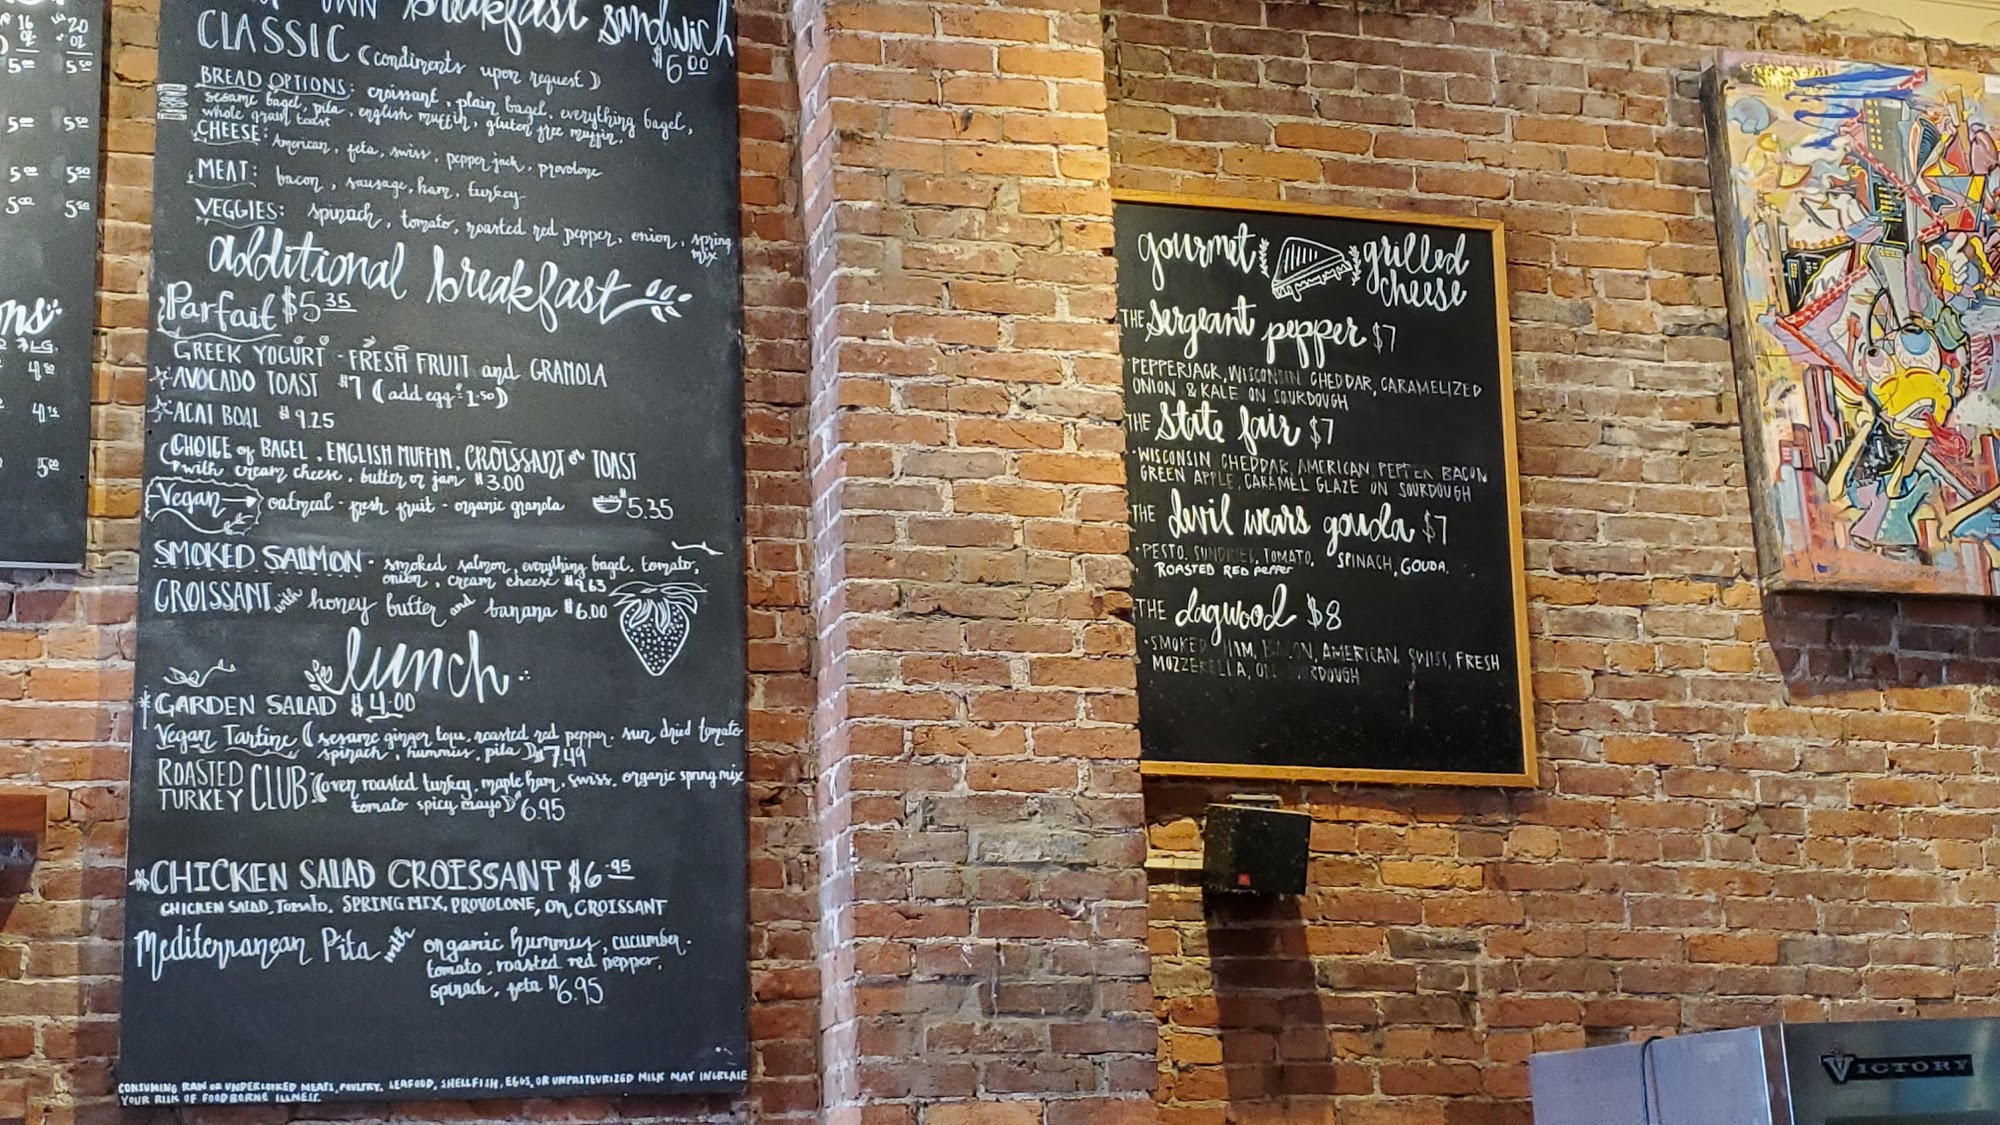 16 20
oz oz
5⁰⁰ 5⁵⁰
5⁰⁰ 5⁵⁰
5⁰⁰ 5⁵⁰
5⁰⁰ 5⁵⁰
LG.
4⁷⁵
5⁰⁰
own breakfast sandwich
CLASSIC (condiments upon request) $6⁰⁰
BREAD OPTIONS: croissant, plain bagel, everything bagel,
sesame bagel, pita, english muffin, gluten free muffin,
whole grain toast
CHEESE: American, feta, swiss, pepper jack, provolone
MEAT: bacon, sausage, ham, turkey
VEGGIES: spinach, tomato, roasted red pepper, onion, spring mix
additional breakfast
Parfait $5³⁵
GREEK YOGURT - FRESH FRUIT and GRANOLA
AVOCADO TOAST $7 (add egg 1.50)
ACAI BOAL $9.25
CHOICE of BAGEL, ENGLISH MUFFIN, CROISSANT or TOAST
with cream cheese, butter or jam $3.00
Vegan oatmeal - fresh fruit - organic granola $5.35
SMOKED SALMON - smoked salmon, everything bagel, tomato,
onion, cream cheese $9.63
CROISSANT with honey butter and banana $6.00
lunch
GARDEN SALAD $4.00
Vegan Tartine (sesame ginger tofu, roasted red pepper, sun dried tomato
spinach, hummus, pita) $7.49
ROASTED TURKEY CLUB (oven roasted turkey, maple ham, swiss, organic spring mix
tomato spicy mayo) $6.95
CHICKEN SALAD CROISSANT $6.95
CHICKEN SALAD, TOMATO, SPRING MIX, PROVOLONE, ON CROISSANT
Mediterranean Pita with organic hummus, cucumber.
tomato, roasted red pepper,
spinach, feta $6.95
CONSUMING RAW OR UNDERCOOKED MEATS, POULTRY, SEAFOOD, SHELLFISH, EGGS, OR UNPASTURIZED MILK MAY INCREASE
YOUR RISK OF FOODBORNE ILLNESS.
gourmet grilled cheese
THE sergeant pepper $7
·PEPPERJACK, WISCONSIN CHEDDAR, CARAMELIZED
ONION & KALE ON SOURDOUGH
THE state fair $7
·WISCONSIN CHEDDAR, AMERICAN, PEPPER BACON
GREEN APPLE, CARAMEL GLAZE ON SOURDOUGH
THE devil wears gouda $7
·PESTO, SUNDRIED, TOMATO, SPINACH, GOUDA.
ROASTED RED PEPPER
THE dagwood $8
·SMOKED HAM, BACON, AMERICAN, SWISS, FRESH
MOZZERELLA, ON SOURDOUGH
VICTORY